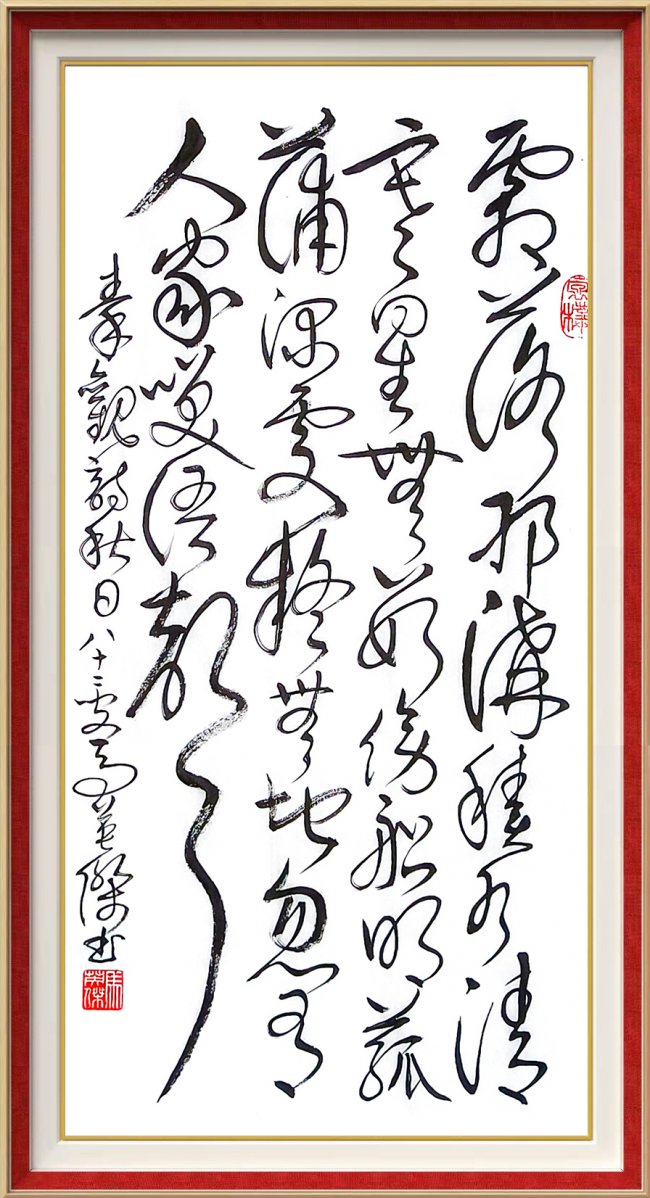 霜落邗溝積水清
寒星無數傍船明菰
蒲深處疑無地忽有
人家笑語聲
秦觀詩秋日八十二叟馬英傑书
馬英傑